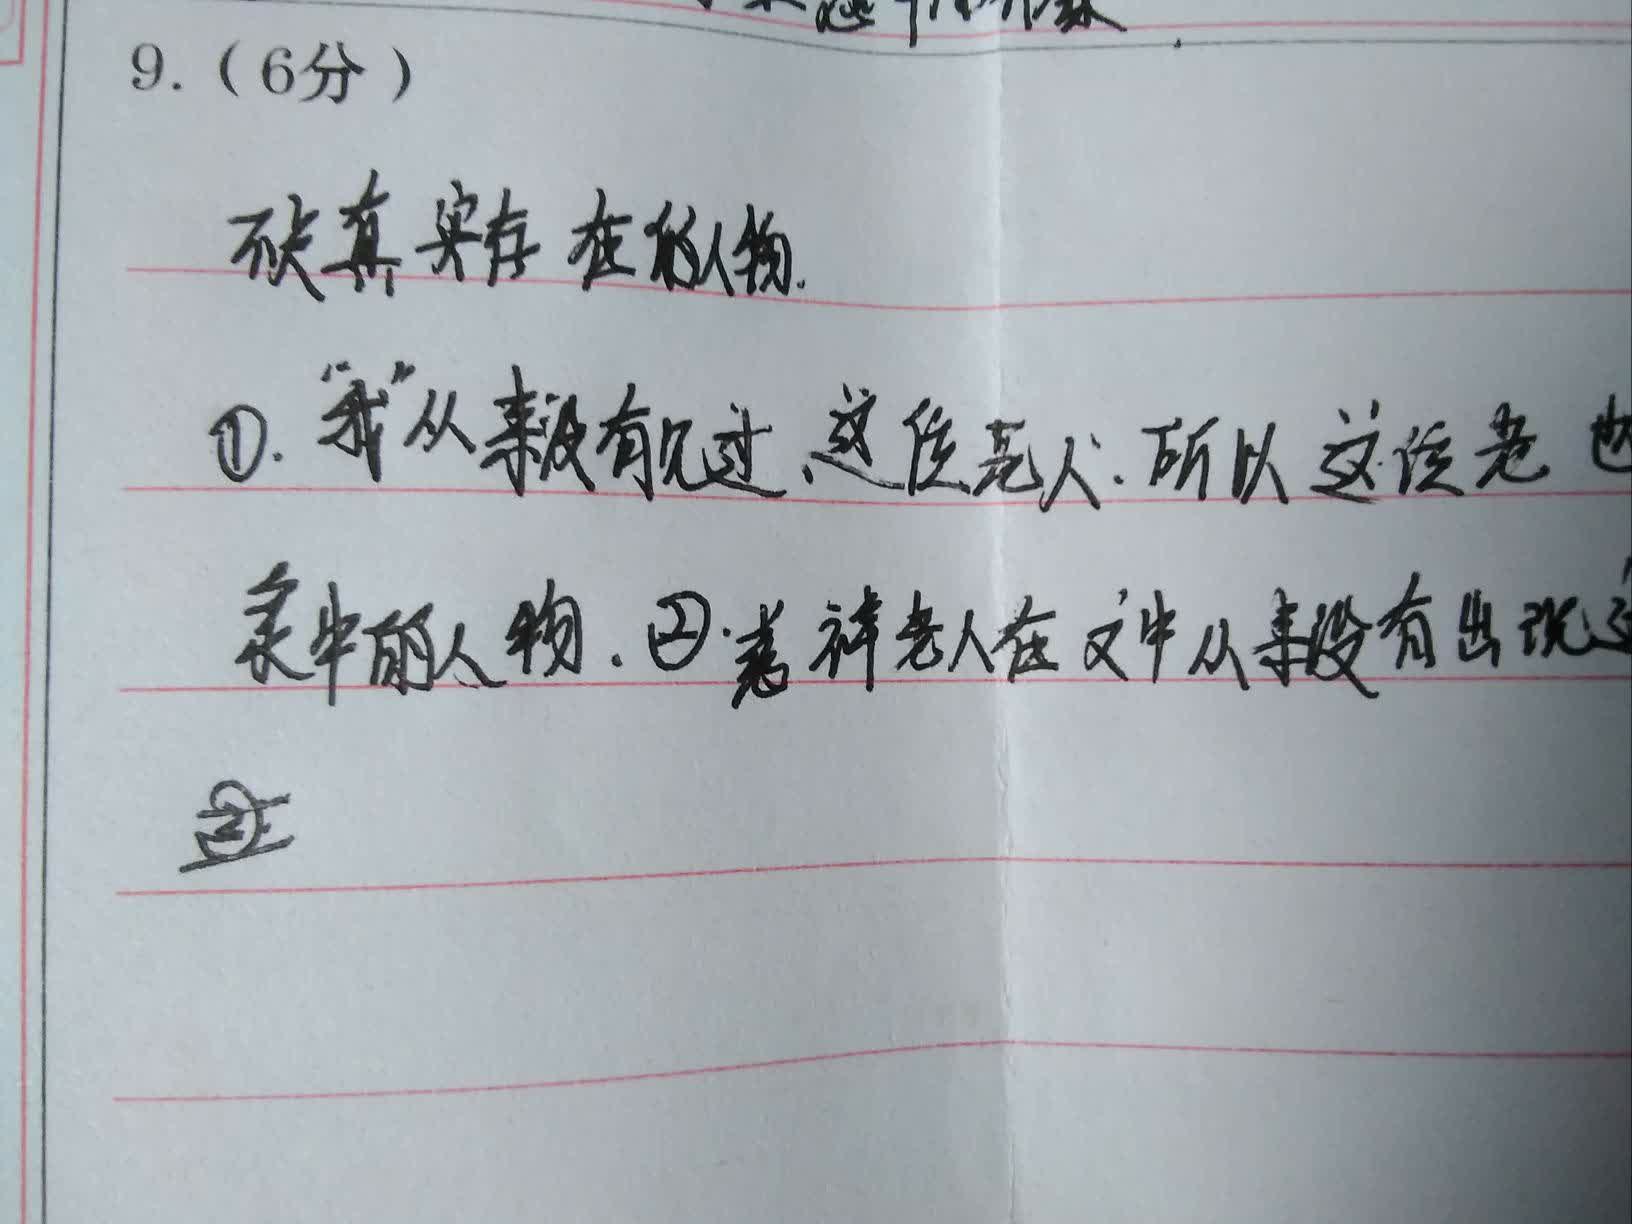 9.（6分）
不是真实存在的人物.
①."我"从来没有见过这位老人.所以这位老也
灵中的人物.②.慈祥老人在文中从来没有出现过